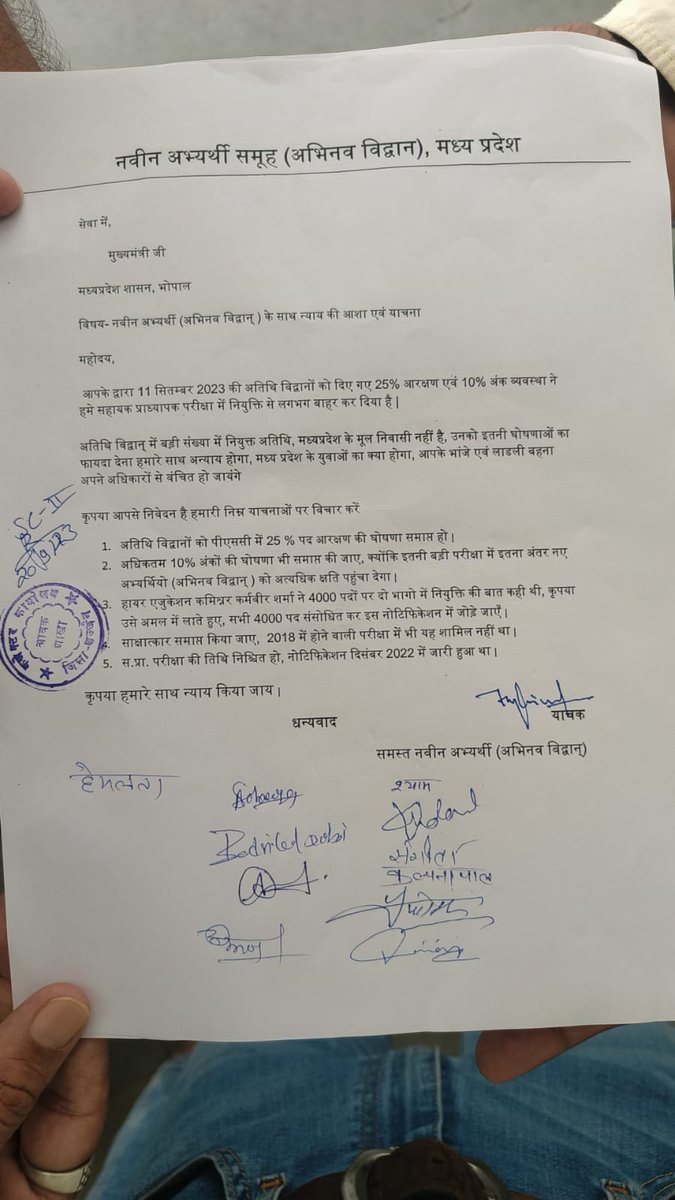 नवीन अभ्यर्थी समूह (अभिनव विद्वान), मध्य प्रदेश
सेवा में,
मुख्यमंत्री जी
मध्यप्रदेश शासन, भोपाल
विषय- नवीन अभ्यर्थी (अभिनव विद्वान् ) के साथ न्याय की आशा एवं याचना
महोदय,
आपके द्वारा 11 सितम्बर 2023 की अतिथि विद्वानों को दिए गए 25% आरक्षण एवं 10% अंक व्यवस्था ने
हमे सहायक प्राध्यापक परीक्षा में नियुक्ति से लगभग बाहर कर दिया है |
अतिथि विद्वान् में बड़ी संख्या में नियुक्त अतिथि, मध्यप्रदेश के मूल निवासी नहीं है, उनको इतनी घोषणाओं का
फायदा देना हमारे साथ अन्याय होगा, मध्य प्रदेश के युवाओं का क्या होगा, आपके भांजे एवं लाडली बहना
अपने अधिकारों से वंचित हो जायंगे
कृपया आपसे निवेदन है हमारी निम्न याचनाओं पर विचार करें
1. अतिथि विद्वानों को पीएससी में 25 % पद आरक्षण की घोषणा समाप्त हो।
2. अधिकतम 10% अंकों की घोषणा भी समाप्त की जाए, क्योंकि इतनी बड़ी परीक्षा में इतना अंतर नए
अभ्यर्थियो (अभिनव विद्वान् ) को अत्यधिक क्षति पहुंचा देगा।
3. हायर एजुकेशन कमिश्नर कर्मवीर शर्मा ने 4000 पदों पर दो भागो में नियुक्ति की बात कही थी, कृपया
उसे अमल में लाते हुए, सभी 4000 पद संसोधित कर इस नोटिफिकेशन में जोड़े जाएँ।
साक्षात्कार समाप्त किया जाए, 2018 में होने वाली परीक्षा में भी यह शामिल नहीं था।
5. स.प्रा. परीक्षा की तिथि निश्चित हो, नोटिफिकेशन दिसंबर 2022 में जारी हुआ था।
कृपया हमारे साथ न्याय किया जाय।
धन्यवाद
याचक
समस्त नवीन अभ्यर्थी (अभिनव विद्वान्)
हेमलता
श्याम
संगीता
कल्पना पाल